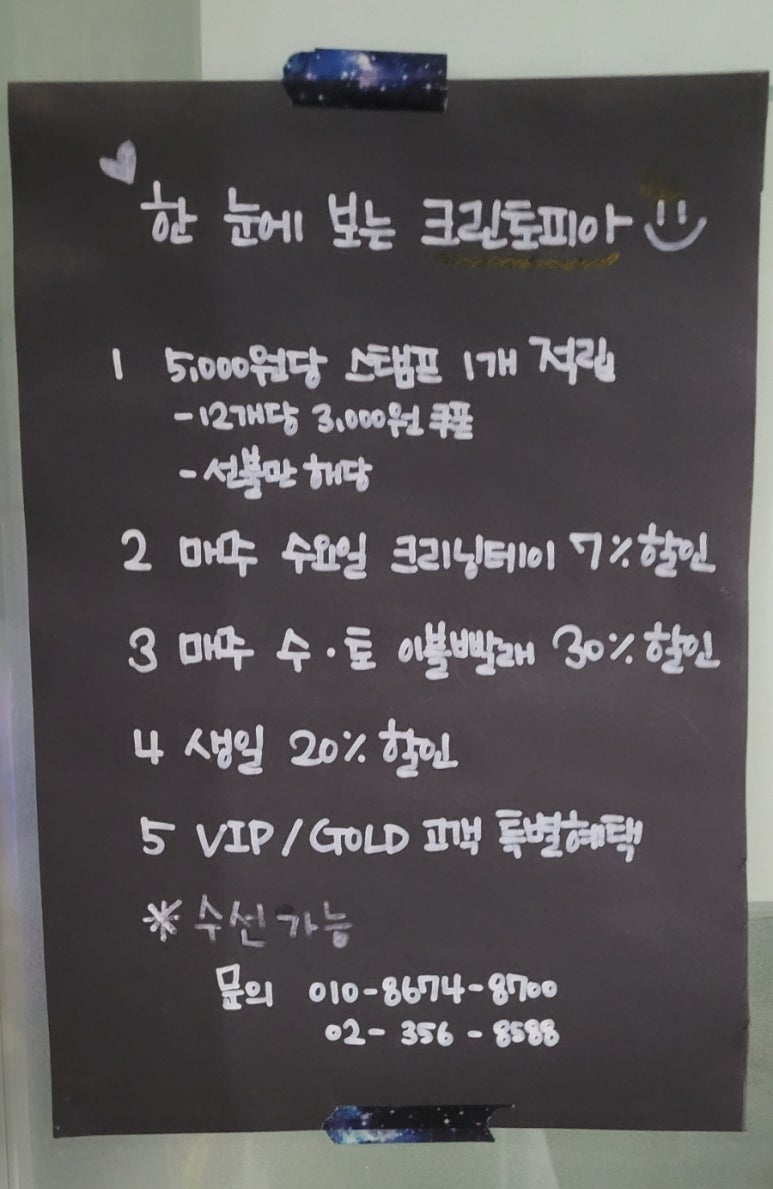 한 눈에 보는 크린토피아
1 5,000원당 스탬프 1개 적립
-12개당 3,000원 쿠폰
-선불만 해당
2 매주 수요일 크리닝데이 7%할인
3 매주 수·토 이불빨래 30%할인
4 생일 20%할인
5 VIP/GOLD 고객 특별혜택
*수선가능
문의 010-8674-8700
02-356-8588